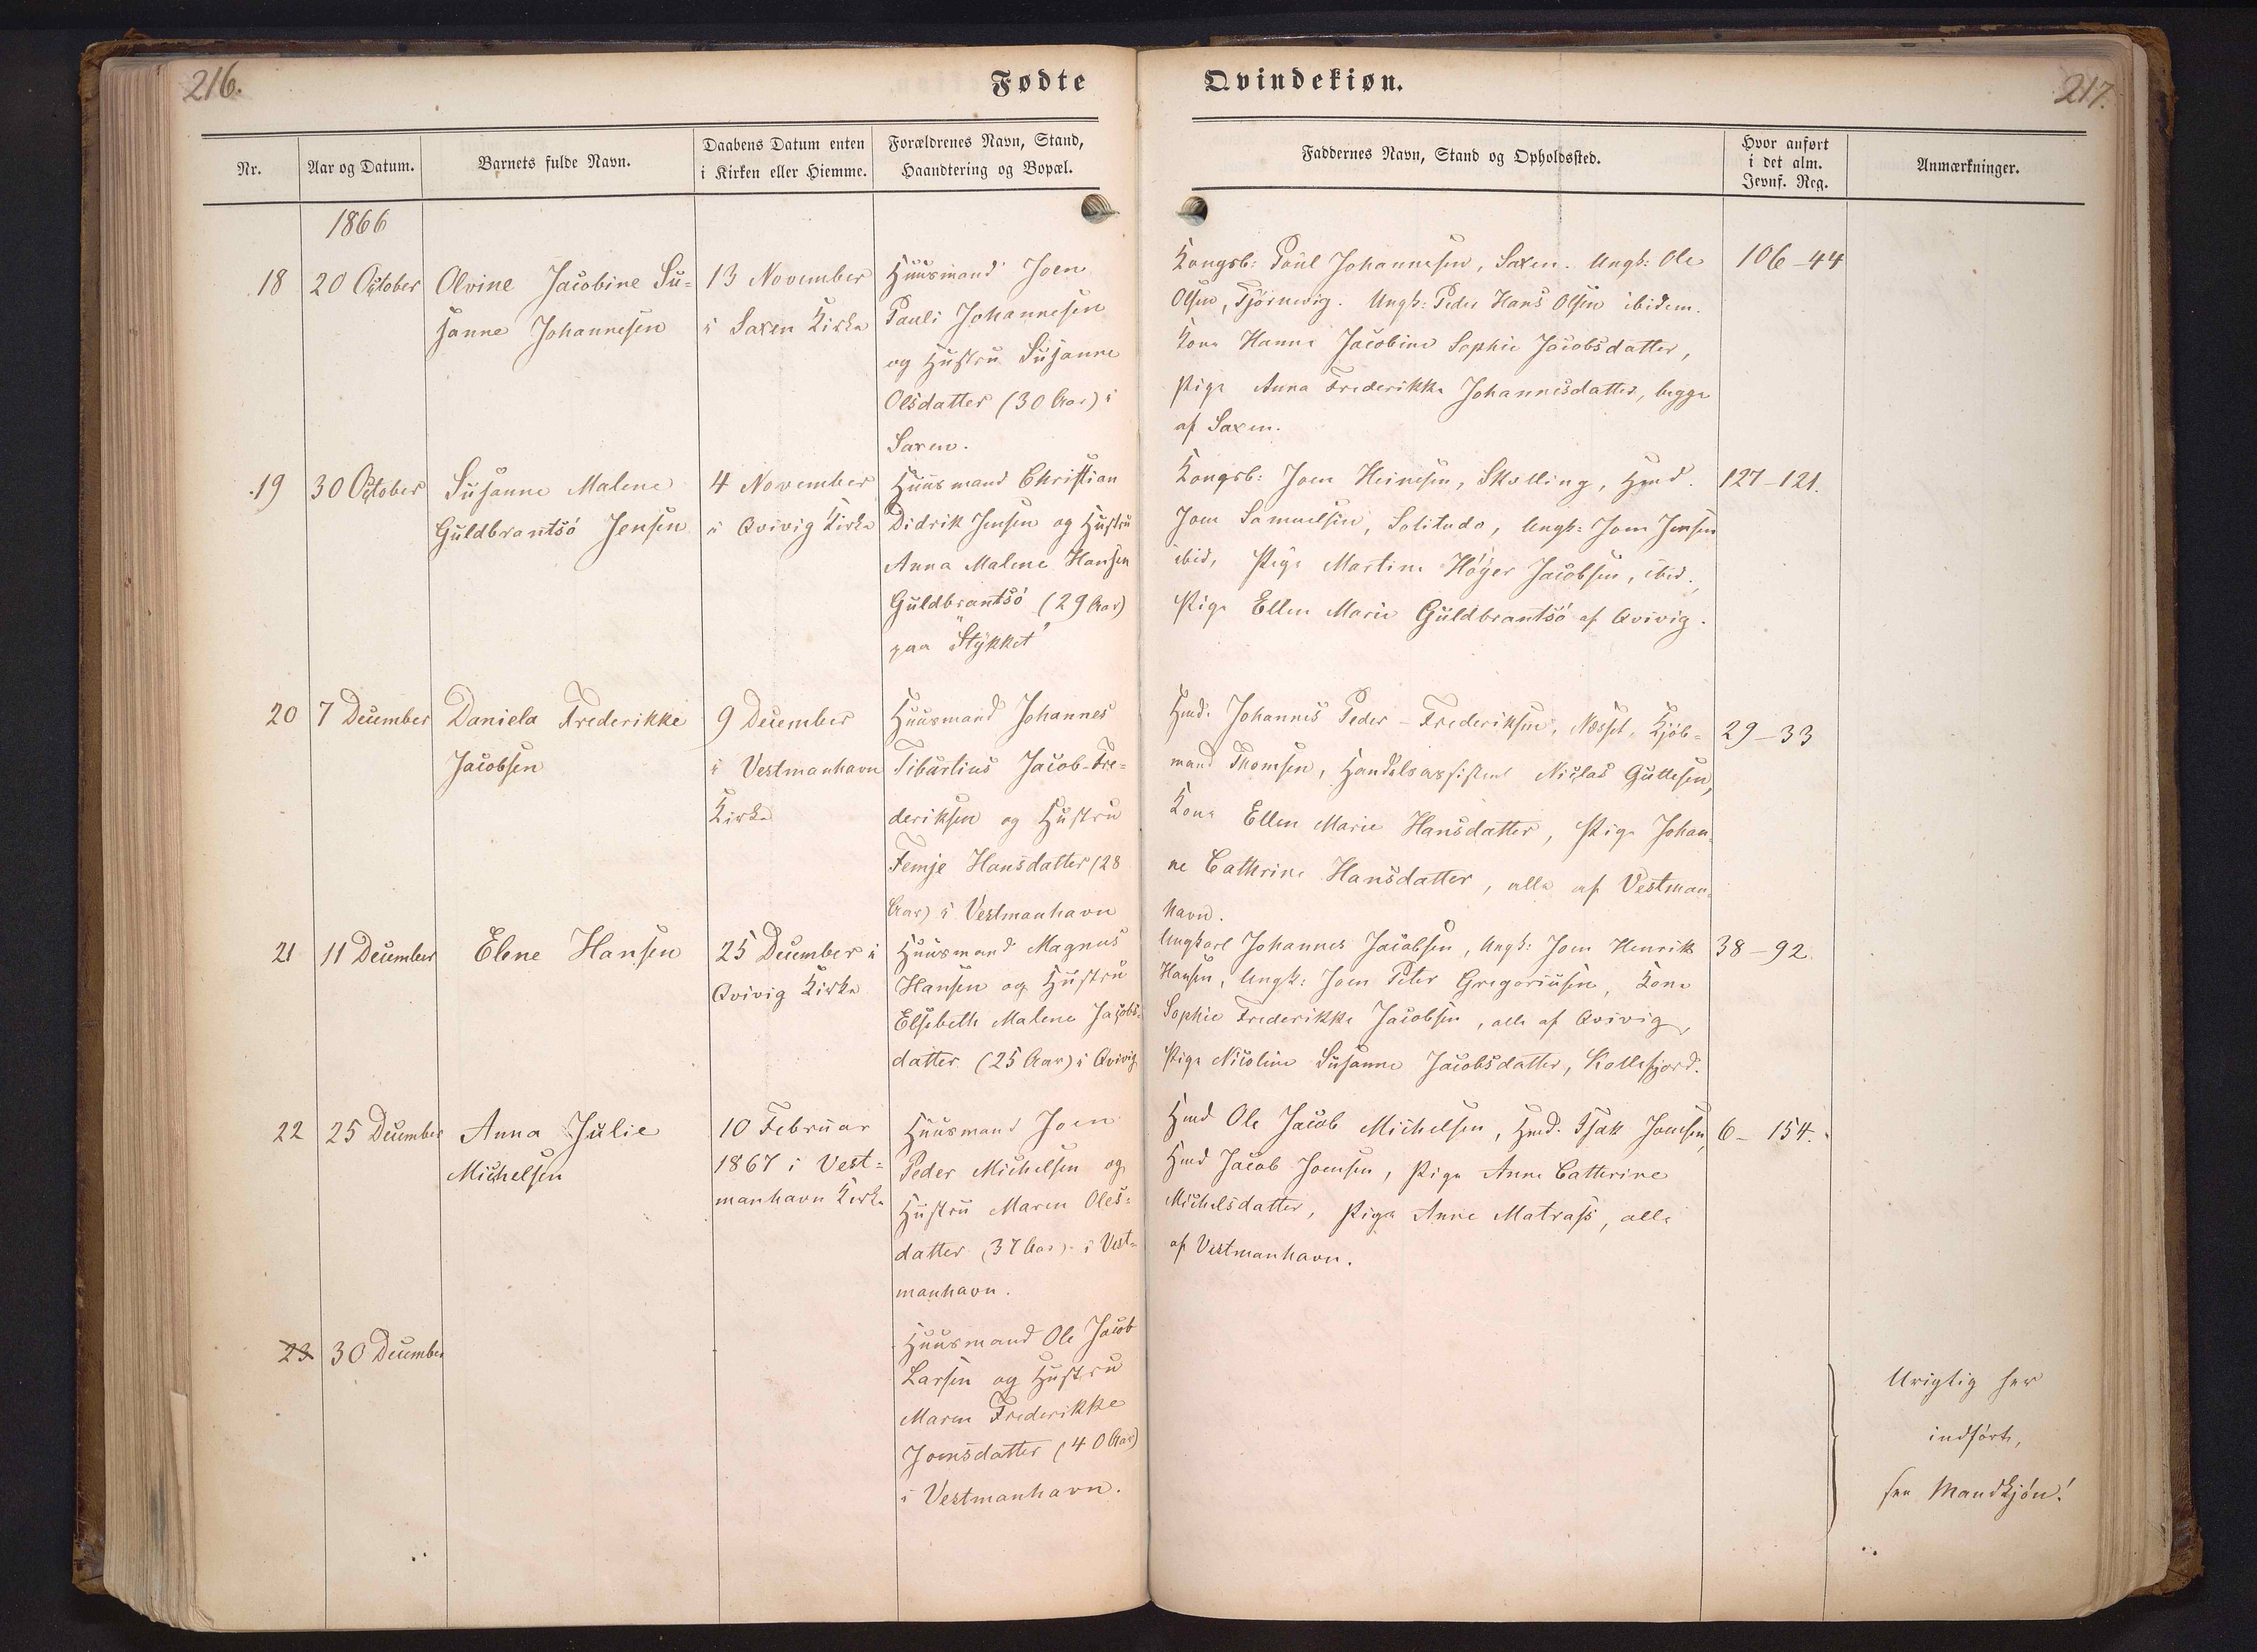 216.
Fødte
Nr.
Aar og Datum.
Barnets fulde Navn.
Daabens Datum enten
i Kirken eller Hiemme.
Forældrenes Navn, Stand,
Haandtering og Bopæl.
1866
18
20 October
Olvine Jacobine Su=
sanne Johannesen
13 November
i Saxen Kirke
Huusmand Joen
Pauli Johannesen
og Hustru Susanne
Olsdatter (30 Aar) i
Saxen.
19
30 October
Susanne Malene
Guldbrantsø Jensen
4 November
i Qvivig Kirke
Huusmand Christian
Didrik Jensen og Hustru
Anna Malene Hansen
Guldbrantsø (29 Aar)
paa "Stykket"
20
7 December
Daniela Frederikke
Jacobsen
9 December
i Vestmanhavn
Kirke
Huusmand Johannes
Tiburtius Jacob-Fre=
deriksen og Hustru
Femje Hansdatter (28
Aar) i Vestmanhavn
21
11 December
Elene Hansen
25 December i
Qvivig Kirke
Huusmand Magnus
Hansen og Hustru
Elsebeth Malene Jacobs=
datter (25 Aar) i Qvivig
22
25 December
Anna Julie
Michelsen
10 Februar
1867 i Vest=
manhavn Kirke
Huusmand Joen
Peder Michelsen og
Hustru Maren Oles=
datter (37 Aar) i Vest=
manhavn.
23
30 December
Huusmand Ole Jacob
Larsen og Hustru
Maren Frederikke
Joensdatter (40 Aar)
i Vestmanhavn.
Qvindekiøn.
217.
Faddernes Navn, Stand og Opholdssted.
Hvor anført
i det alm.
Jevnf. Reg.
Anmærkninger.
Kongsb: Poul Johannesen, Saxen. Ungk: Ole
Olsen, Tjørnevig. Ungk: Peder Hans Olsen ibidem.
Kone Hanne Jacobine Sophie Jacobsdatter,
Pige Anna Frederikke Johannesdatter, begge
af Saxen.
106-44
Kongsb: Joen Heinesen, Skælling, Hmd.
Joen Samuelsen, Solitude, Ungk: Joen Jensen
ibid, Pige Martine Høyer Jacobsen, ibid.,
Pige Ellen Marie Guldbrantsø af Qvivig.
127-121.
Hmd. Johannes Peder-Frederiksen, Næsset, Kjøb=
mand Thomsen, Handelsassistent Niclas Guttesen,
Kone Ellen Marie Hansdatter, Pige Johan=
ne Cathrine Hansdatter, alle af Vestman=
havn.
29-33
Ungkarl Johannes Jacobsen, Ungk: Joen Henrik
Hansen, Ungk: Joen Peter Gregoriusen, Kone
Sophie Frederikke Jacobsen, alle af Qvivig,
Pige Nicoline Susanne Jacobsdatter, Kollefjord.
38-92.
Hmd Ole Jacob Michelsen, Hmd. Isak Joensen,
Hmd Jacob Joensen, Pige Anne Catherine
Michelsdatter, Pige Anne Matrass, alle
af Vestmanhavn.
6-154.
Urigtig her
indført,
see Mandkjøn!